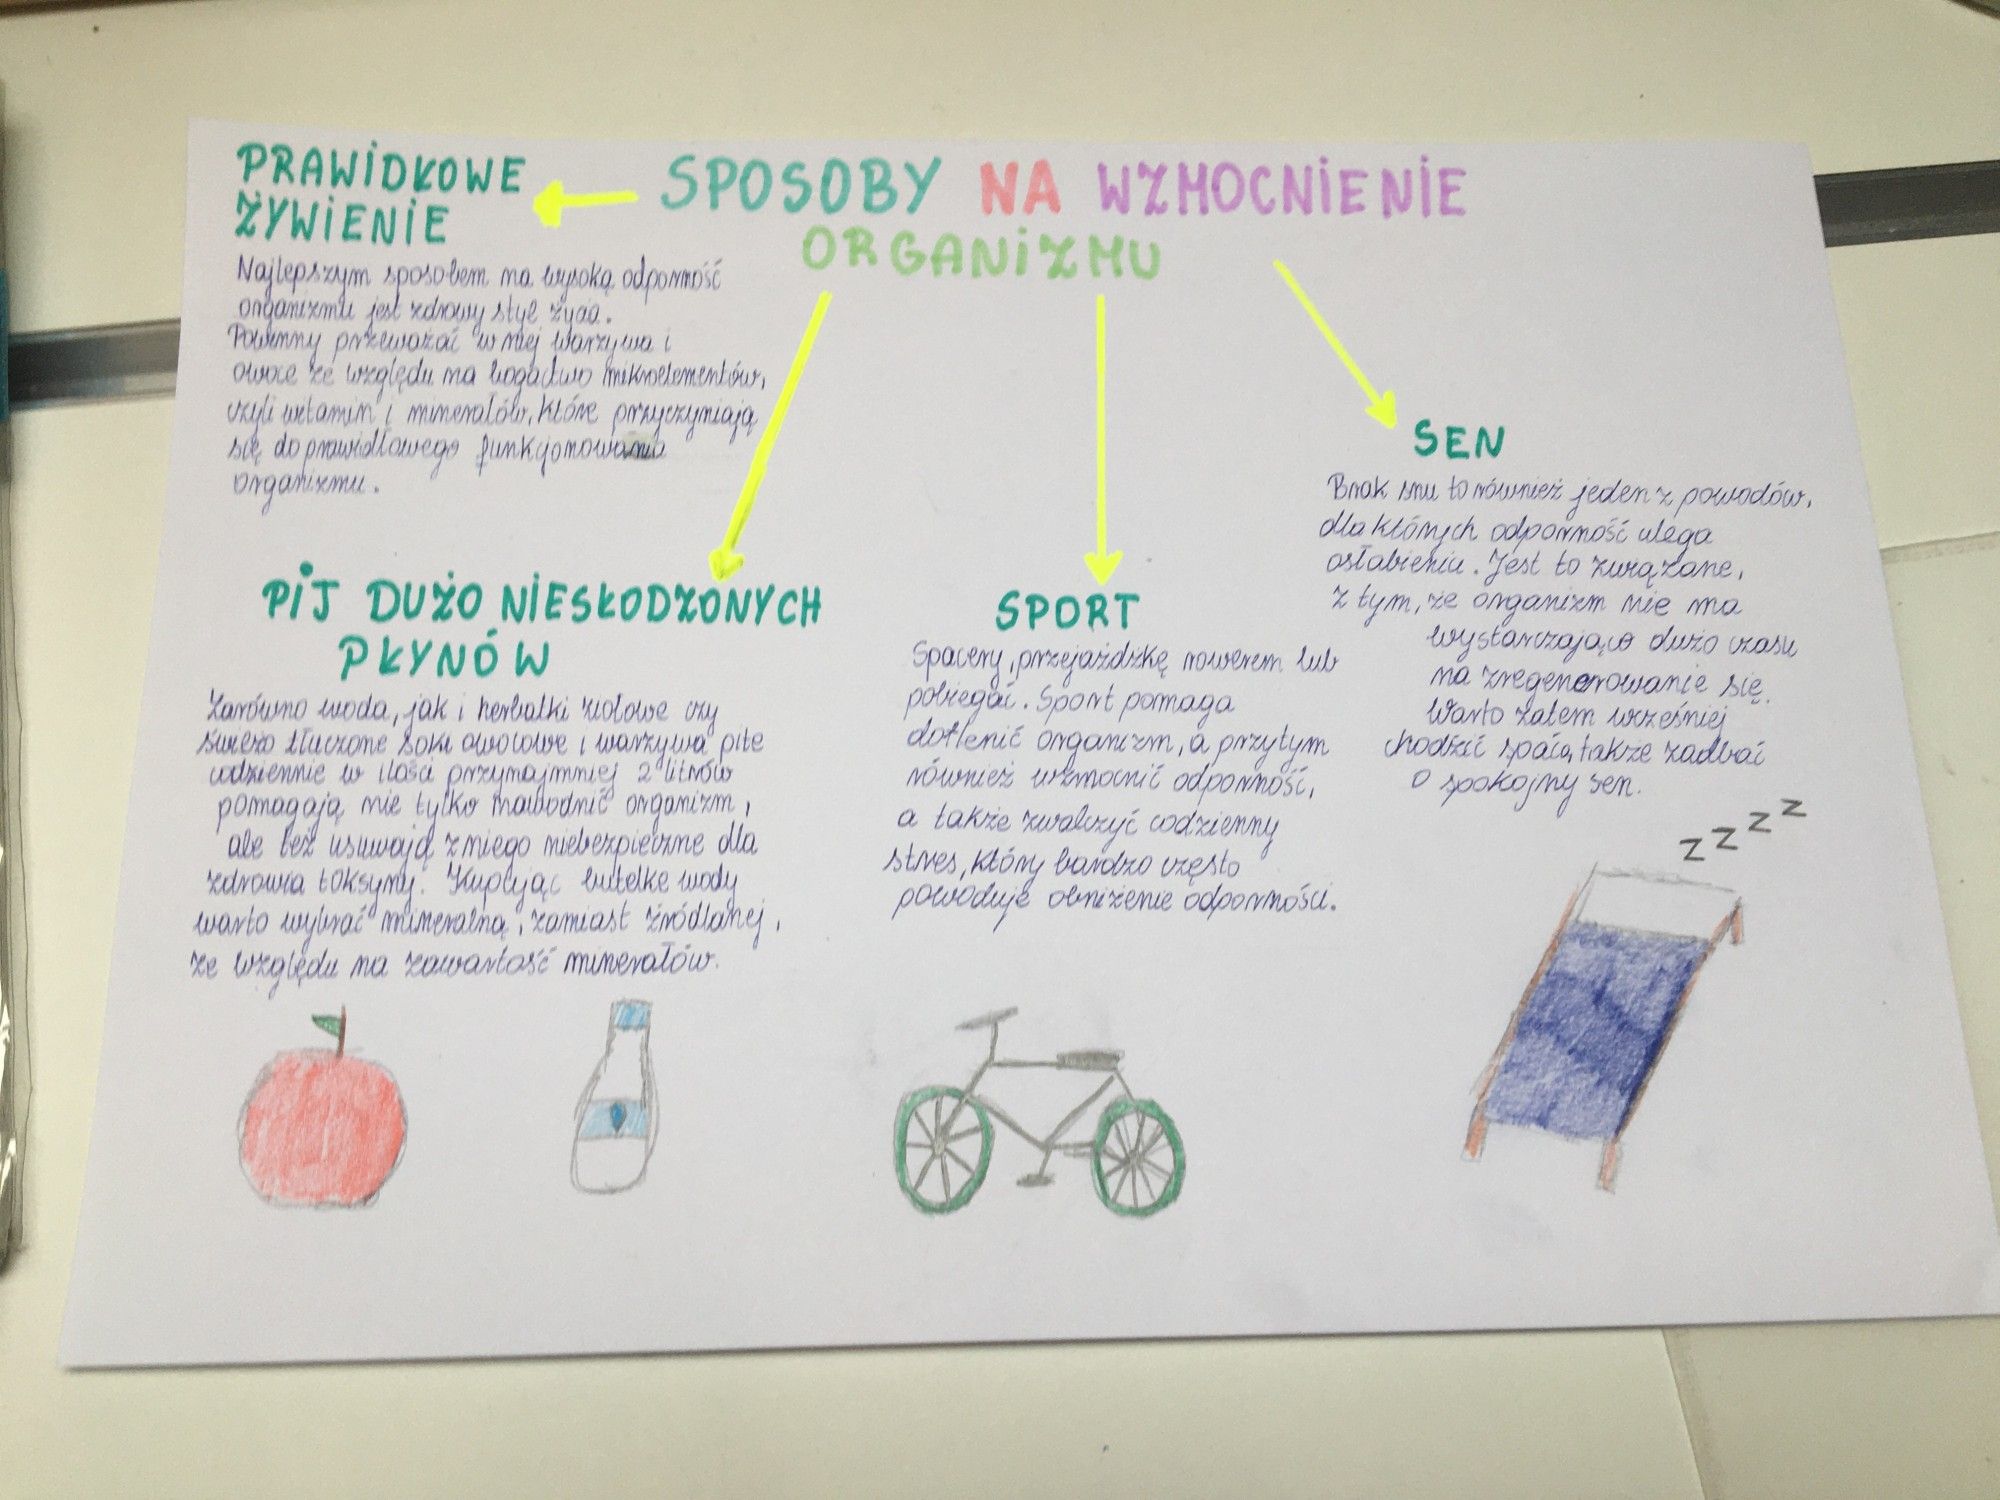 SPOSOBY NA WZMOCNIENIE
ORGANIZMU
PRAWIDŁOWE
ŻYWIENIE
Najlepszym sposobem na wysoką odporność
organizmu jest zdrowy styl życia.
Powinny przeważać w niej warzywa i
owoce ze względu na bogactwo mikroelementów,
czyli witamin i minerałów, które przyczyniają
się do prawidłowego funkcjonowania
organizmu.
PIJ DUŻO NIESŁODZONYCH
PŁYNÓW
Zarówno woda, jak i herbatki ziołowe czy
świeżo tłuczone soki owocowe i warzywa pite
codziennie w ilości przynajmniej 2 litrów
pomagają nie tylko nawodnić organizm,
ale też usuwają z niego niebezpieczne dla
zdrowia toksyny. Kupując butelkę wody
warto wybrać mineralną, zamiast źródlanej,
ze względu na zawartość minerałów.
SPORT
Spacery, przejażdżkę rowerem lub
pobiegać. Sport pomaga
dotlenić organizm, a przytym
również wzmocnić odporność,
a także zwalczyć codzienny
stres, który bardzo często
powoduje obniżenie odporności.
SEN
Brak snu to również jeden z powodów,
dla których odporność ulega
osłabieniu. Jest to związane,
z tym, że organizm nie ma
wystarczająco dużo czasu
na zregenerowanie się.
Warto zatem wcześniej
chodzić spać, a także zadbać
o spokojny sen.
z z z z